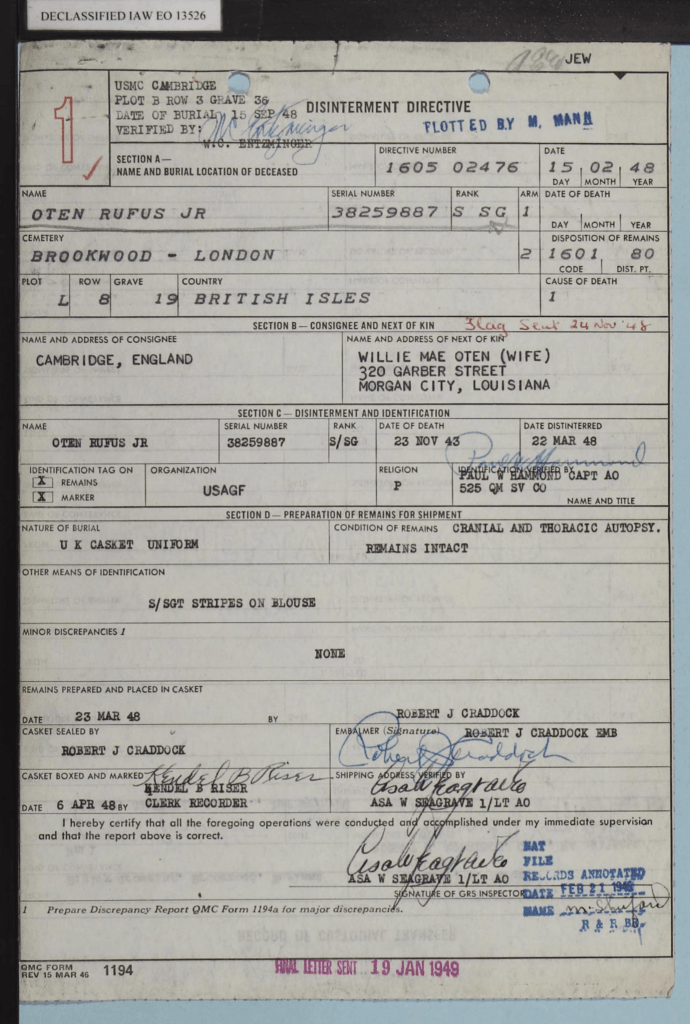 DECLASSIFIED IAW EO 13526
JEW
1
USMC CAMBRIDGE
PLOT B ROW 3 GRAVE 36
DATE OF BURIAL 15 SEP 48
VERIFIED BY:
W.C. ENTZMINGER
DISINTERMENT DIRECTIVE
PLOTTED BY M. MANN
SECTION A—
NAME AND BURIAL LOCATION OF DECEASED
DIRECTIVE NUMBER
1605 02476
DATE
15 02 48
DAY MONTH YEAR
NAME
OTEN RUFUS JR
SERIAL NUMBER
38259887
RANK
S SG
ARM
1
DATE OF DEATH
DAY MONTH YEAR
CEMETERY
BROOKWOOD - LONDON
2
DISPOSITION OF REMAINS
1601 80
CODE DIST. PT.
PLOT ROW GRAVE COUNTRY
L 8 19 BRITISH ISLES
CAUSE OF DEATH
1
SECTION B—CONSIGNEE AND NEXT OF KIN
Flag Sent 24 Nov 48
NAME AND ADDRESS OF CONSIGNEE
CAMBRIDGE, ENGLAND
NAME AND ADDRESS OF NEXT OF KIN
WILLIE MAE OTEN (WIFE)
320 GARBER STREET
MORGAN CITY, LOUISIANA
SECTION C—DISINTERMENT AND IDENTIFICATION
NAME
OTEN RUFUS JR
SERIAL NUMBER
38259887
RANK
S/SG
DATE OF DEATH
23 NOV 43
DATE DISTINTERRED
22 MAR 48
IDENTIFICATION TAG ON
X REMAINS
X MARKER
ORGANIZATION
USAGF
RELIGION
P
IDENTIFICATION VERIFIED BY
PAUL W HAMMOND CAPT AO
525 QM SV CO
NAME AND TITLE
SECTION D—PREPARATION OF REMAINS FOR SHIPMENT
NATURE OF BURIAL
U K CASKET UNIFORM
CONDITION OF REMAINS CRANIAL AND THORACIC AUTOPSY.
REMAINS INTACT
OTHER MEANS OF IDENTIFICATION
S/SGT STRIPES ON BLOUSE
MINOR DISCREPANCIES 1
NONE
REMAINS PREPARED AND PLACED IN CASKET
DATE 23 MAR 48 BY ROBERT J CRADDOCK
CASKET SEALED BY
ROBERT J CRADDOCK
EMBALMER (Signature) ROBERT J CRADDOCK EMB
Robert J Craddock
CASKET BOXED AND MARKED Kendel B Riser
KENDEL B RISER
DATE 6 APR 48 BY CLERK RECORDER
SHIPPING ADDRESS VERIFIED BY
Asa W Seagrave
ASA W SEAGRAVE 1/LT AO
I hereby certify that all the foregoing operations were conducted and accomplished under my immediate supervision
and that the report above is correct.
Asa W Seagrave
ASA W SEAGRAVE 1/LT AO
SIGNATURE OF GRS INSPECTOR
NAT
FILE
RECORDS ANNOTATED
DATE FEB 21 1949
NAME
R & R BR.
1 Prepare Discrepancy Report QMC Form 1194a for major discrepancies.
QMC FORM
REV 15 MAR 46 1194
FINAL LETTER SENT 19 JAN 1949